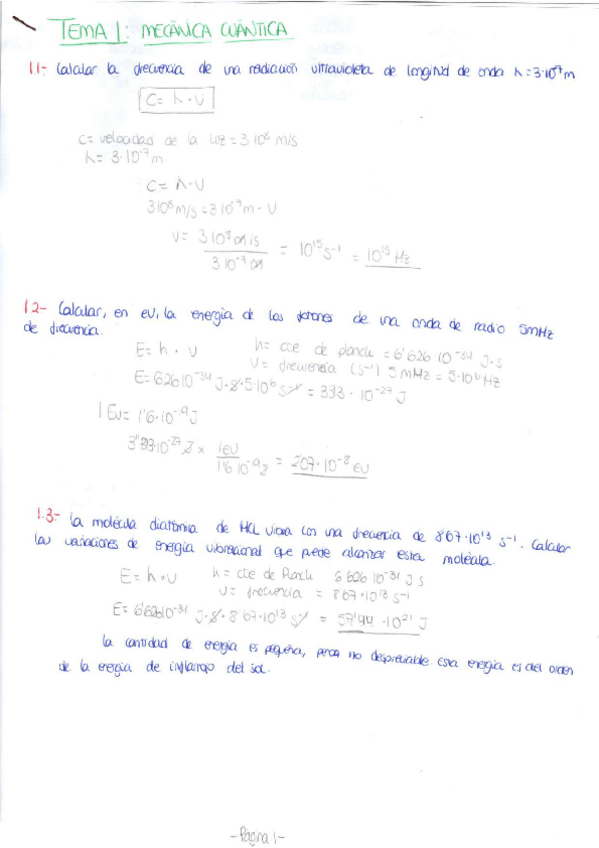 TEMA 1: MECÁNICA CUÁNTICA
1.1- Calcular la frecuencia de una radiación ultravioleta de longitud de onda λ=3·10⁻⁷m
C= λ·ν
C= velocidad de la luz = 3 10⁸ m/s
λ= 3·10⁻⁷ m
C= λ·ν
3 10⁸ m/s = 3 10⁻⁷ m · ν
ν = 3 10⁸ m/s / 3 10⁻⁷ m = 10¹⁵ s⁻¹ = 10¹⁵ Hz
1.2- Calcular, en eV, la energía de los fotones de una onda de radio 5mHz
de frecuencia.
E= h · ν h= cte de planck = 6'626 10⁻³⁴ J·s
ν = frecuencia (s⁻¹) 5 mHz = 5·10⁶ Hz
E= 6626 10⁻³⁴ J·s·5·10⁶ s⁻¹ = 333 · 10⁻²⁷ J
1 Ev= 1'6·10⁻¹⁹ J
3'33·10⁻²⁷ J × 1eV / 1'6 10⁻¹⁹ J = 2'07·10⁻⁸ eV
1.3.- La molécula diatómica de HCL vibra con una frecuencia de 8'67·10¹³ s⁻¹. Calcular
las variaciones de energía vibracional que puede alcanzar esta molécula.
E= h·ν h= cte de Planck 6 626 10⁻³⁴ J s
ν= frecuencia = 8'67·10¹³ s⁻¹
E= 6'626 10⁻³⁴ J·s·8'67·10¹³ s⁻¹ = 57'44 ·10²¹ J
la cantidad de energía es pequeña, pero no despreciable. Esta energía es del orden
de la energía de infrarrojo del sol.
-Página 1-